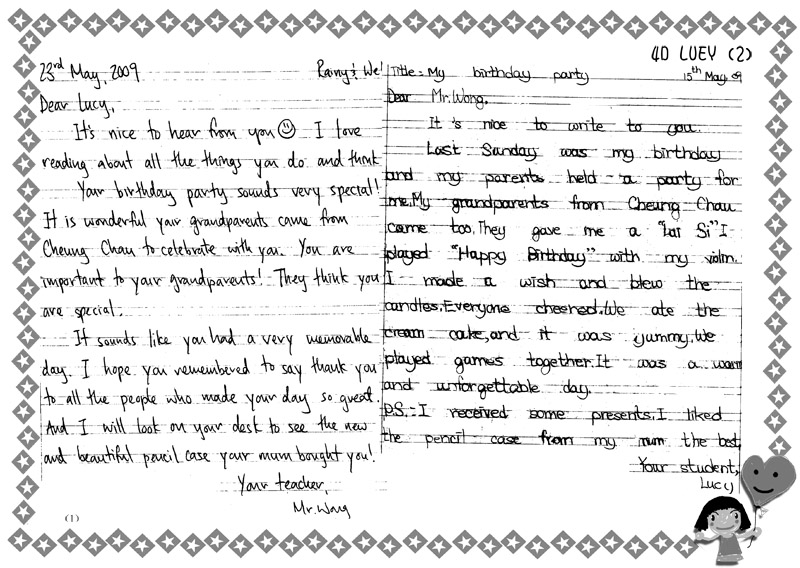 23rd May, 2009 Rainy & Wet
Dear Lucy,
It's nice to hear from you I love
reading about all the things you do and think
Your birthday party sounds very special!
It is wonderful your grandparents came from
Cheung Chau to celebrate with you. You are
important to your grandparents! They think you
are special.
It sounds like you had a very memorable
day. I hope you remembered to say thank you
to all the people who made your day so great.
And I will look on your desk to see the new
and beautiful pencil case your mum bought you!
Your teacher,
Mr. Wong
(1)
4D LUEY (2)
Title: My birthday party 15th May, 09
Dear Mr. Wong,
It's nice to write to you.
Last Sunday was my birthday
and my parents held a party for
me. My grandparents from Cheung Chau
come too. They gave me a "Lai Si" I
played "Happy Birthday" with my violin.
I made a wish and blew the
candles. Everyone cheered. We ate the
cream cake, and it was yummy. We
played games together. It was a warm
and unforgettable day.
P.S.- I received some presents. I liked
the pencil case from my mum the best.
Your student,
Lucy